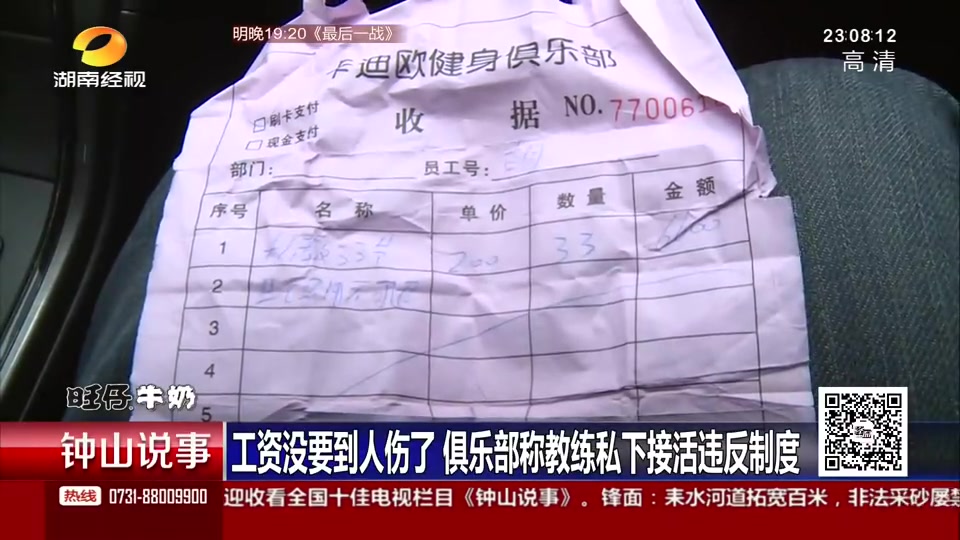 明晚19:20《最后一战》
23:08:12
高清
湖南经视
卡迪欧健身俱乐部
刷卡支付
现金支付
收 据
NO.
部门：
员工号：
序号 名称 单价 数量 金额
1 200 33
2
3
4
5
旺仔牛奶
钟山说事
工资没要到人伤了 俱乐部称教练私下接活违反制度
热线 0731-88009900
迎收看全国十佳电视栏目《钟山说事》。锋面：耒水河道拓宽百米，非法采砂屡禁